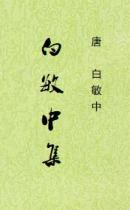 唐 白敏中
白敏中集